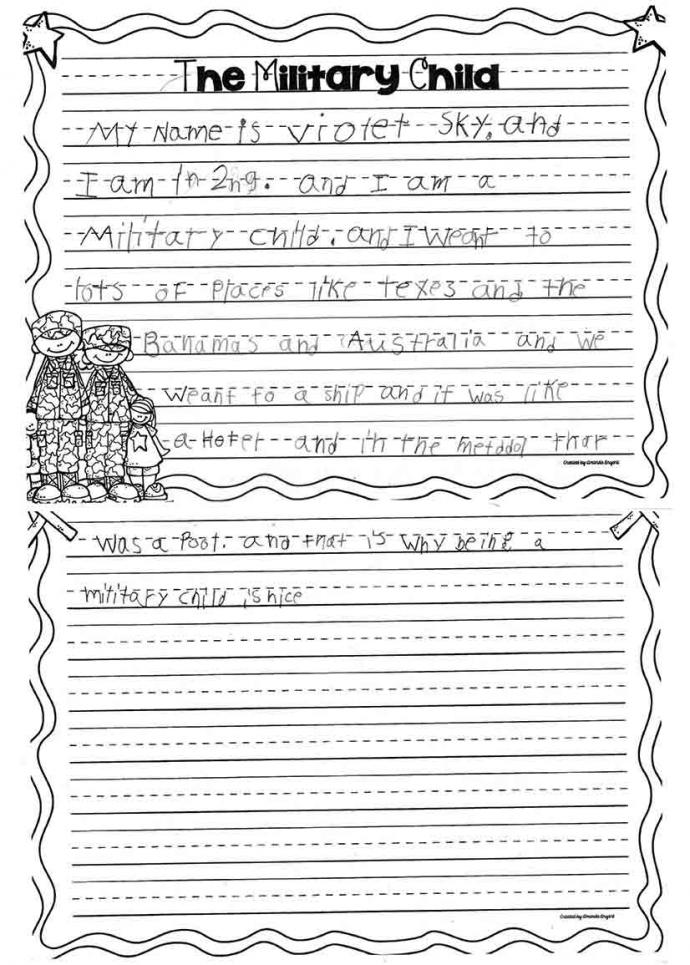 The Military Child
My Name is violet Sky. and
I am in 2ng. and I am a
Military child. and I weant to
lots of places like texes and the
Banamas and Australia and we
weant to a ship and it was like
a Hotel and in the metddol thar
was a Poot. and that is why being a
military child is nice
Created by Amanda Engird
Created by Amanda Engird